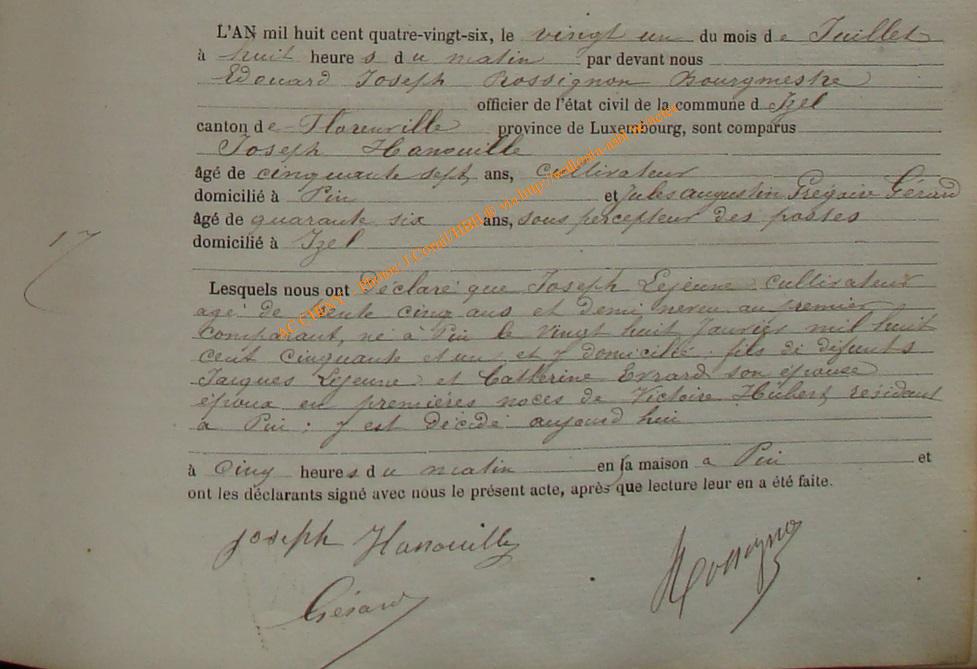 L'AN mil huit cent quatre-vingt-six, le vingt un du mois de Juillet
à huit heures du matin par devant nous
Edouard Joseph Rossignon Bourgmestre
officier de l'état civil de la commune d Izel
canton de Florenville province de Luxembourg, sont comparus
Joseph Hanouille
âgé de cinquante sept ans, cultivateur
domicilié à Pin et Jules Augustin Grégoire Gérard
âgé de quarante six ans, sous percepteur des postes
domicilié à Izel
17
Lesquels nous ont déclaré que Joseph Lejeune cultivateur
agé de trente cinq ans et demi, neveu au premier
comparant, né à Pin le vingt huit Janvier mil huit
cent cinquante et un, et y domicilié, fils de défunts
Jacques Lejeune et Catherine Evrard son épouse
époux en premières noces de Victoire Hubert, résidant
à Pin ; y est décédé aujourd'hui
à cinq heures du matin en sa maison à Pin et
ont les déclarants signé avec nous le présent acte, après que lecture leur en a été faite.
Joseph Hanouille
Rossignon
Gérard
AC CHINY - Photos J.Conil/HBH ® via http://